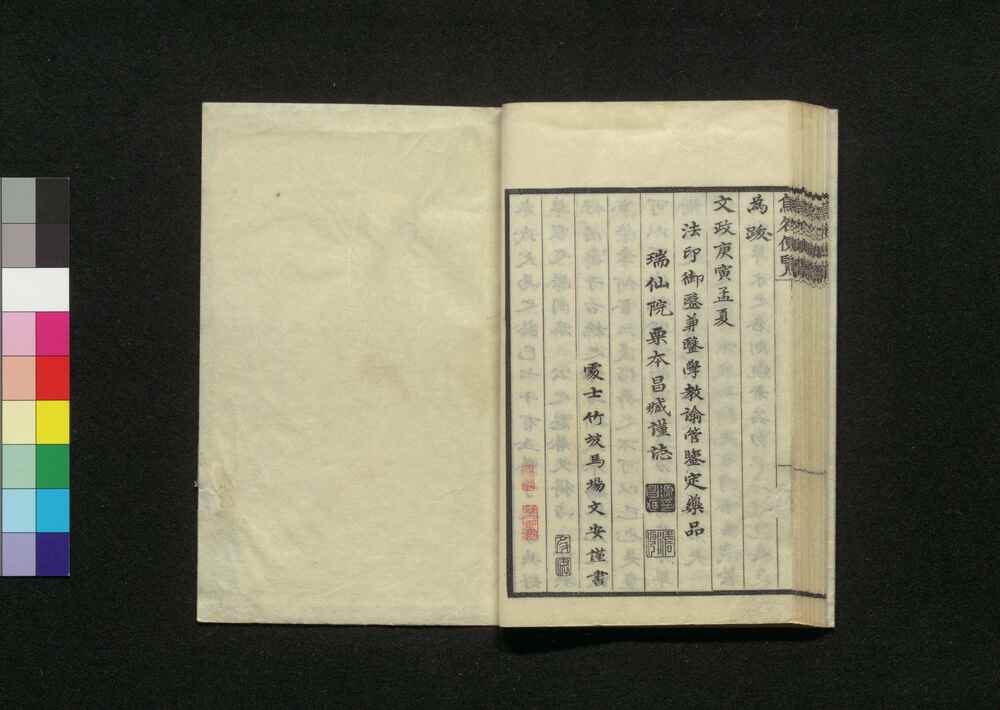 魚名便覧
為跋
文政庚寅孟夏
法印御醫兼醫學教諭管鑒定藥品
瑞仙院栗本昌臧謹誌
處士竹坡馬場文安謹書